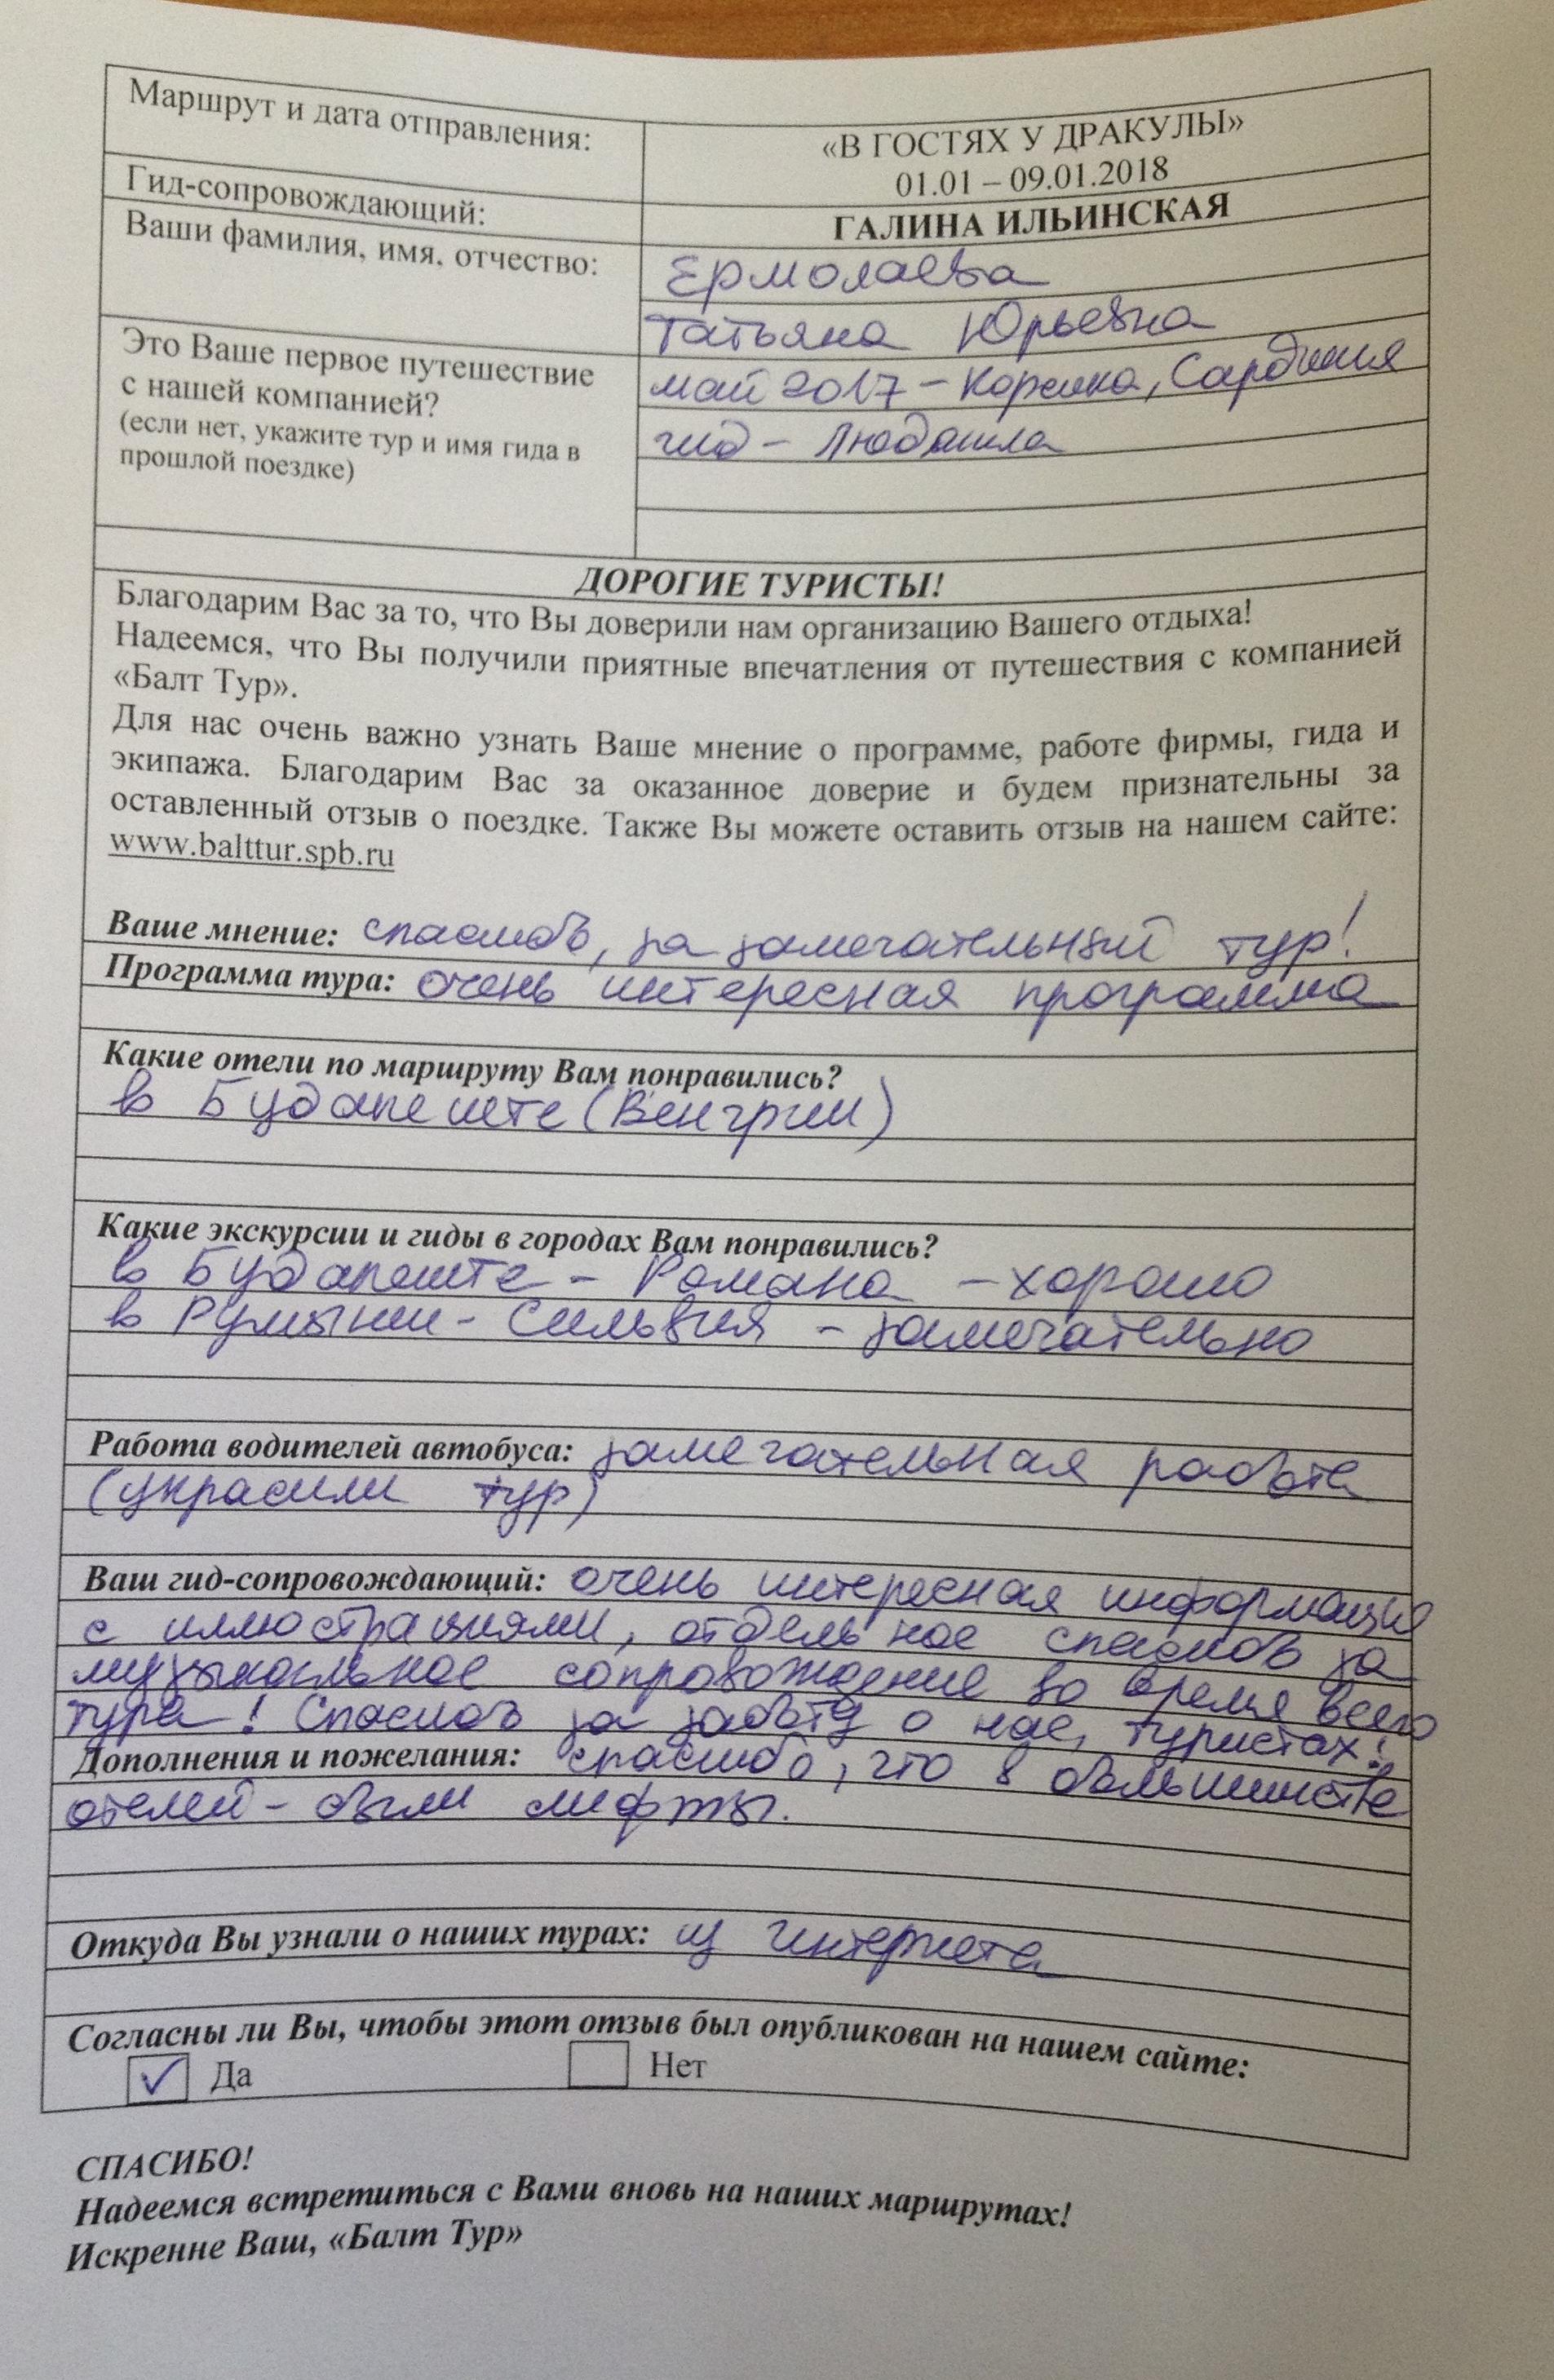 Маршрут и дата отправления:
«В ГОСТЯХ У ДРАКУЛЫ»
01.01 – 09.01.2018
Гид-сопровождающий:
ГАЛИНА ИЛЬИНСКАЯ
Ваши фамилия, имя, отчество:
Ермолаева
Татьяна Юрьевна
Это Ваше первое путешествие
с нашей компанией?
(если нет, укажите тур и имя гида в
прошлой поездке)
май 2017 – Корсика, Сардиния
гид – Людмила
ДОРОГИЕ ТУРИСТЫ!
Благодарим Вас за то, что Вы доверили нам организацию Вашего отдыха!
Надеемся, что Вы получили приятные впечатления от путешествия с компанией
«Балт Тур».
Для нас очень важно узнать Ваше мнение о программе, работе фирмы, гида и
экипажа. Благодарим Вас за оказанное доверие и будем признательны за
оставленный отзыв о поездке. Также Вы можете оставить отзыв на нашем сайте:
www.balttur.spb.ru
Ваше мнение: спасибо, за замечательный тур!
Программа тура: очень интересная программа
Какие отели по маршруту Вам понравились?
в Будапеште (Венгрии)
Какие экскурсии и гиды в городах Вам понравились?
в Будапеште – Романа – хорошо
в Румынии – Сильвия – замечательно
Работа водителей автобуса: замечательная работа
(украсили тур)
Ваш гид-сопровождающий: очень интересная информация
с иллюстрациями, отдельное спасибо за
музыкальное сопровождение во время всего
тура! Спасибо за заботу о нас, туристах!
Дополнения и пожелания: спасибо, что в большинстве
отелей – были лифты.
Откуда Вы узнали о наших турах: из интернета
Согласны ли Вы, чтобы этот отзыв был опубликован на нашем сайте:
✓ Да Нет
СПАСИБО!
Надеемся встретиться с Вами вновь на наших маршрутах!
Искренне Ваш, «Балт Тур»